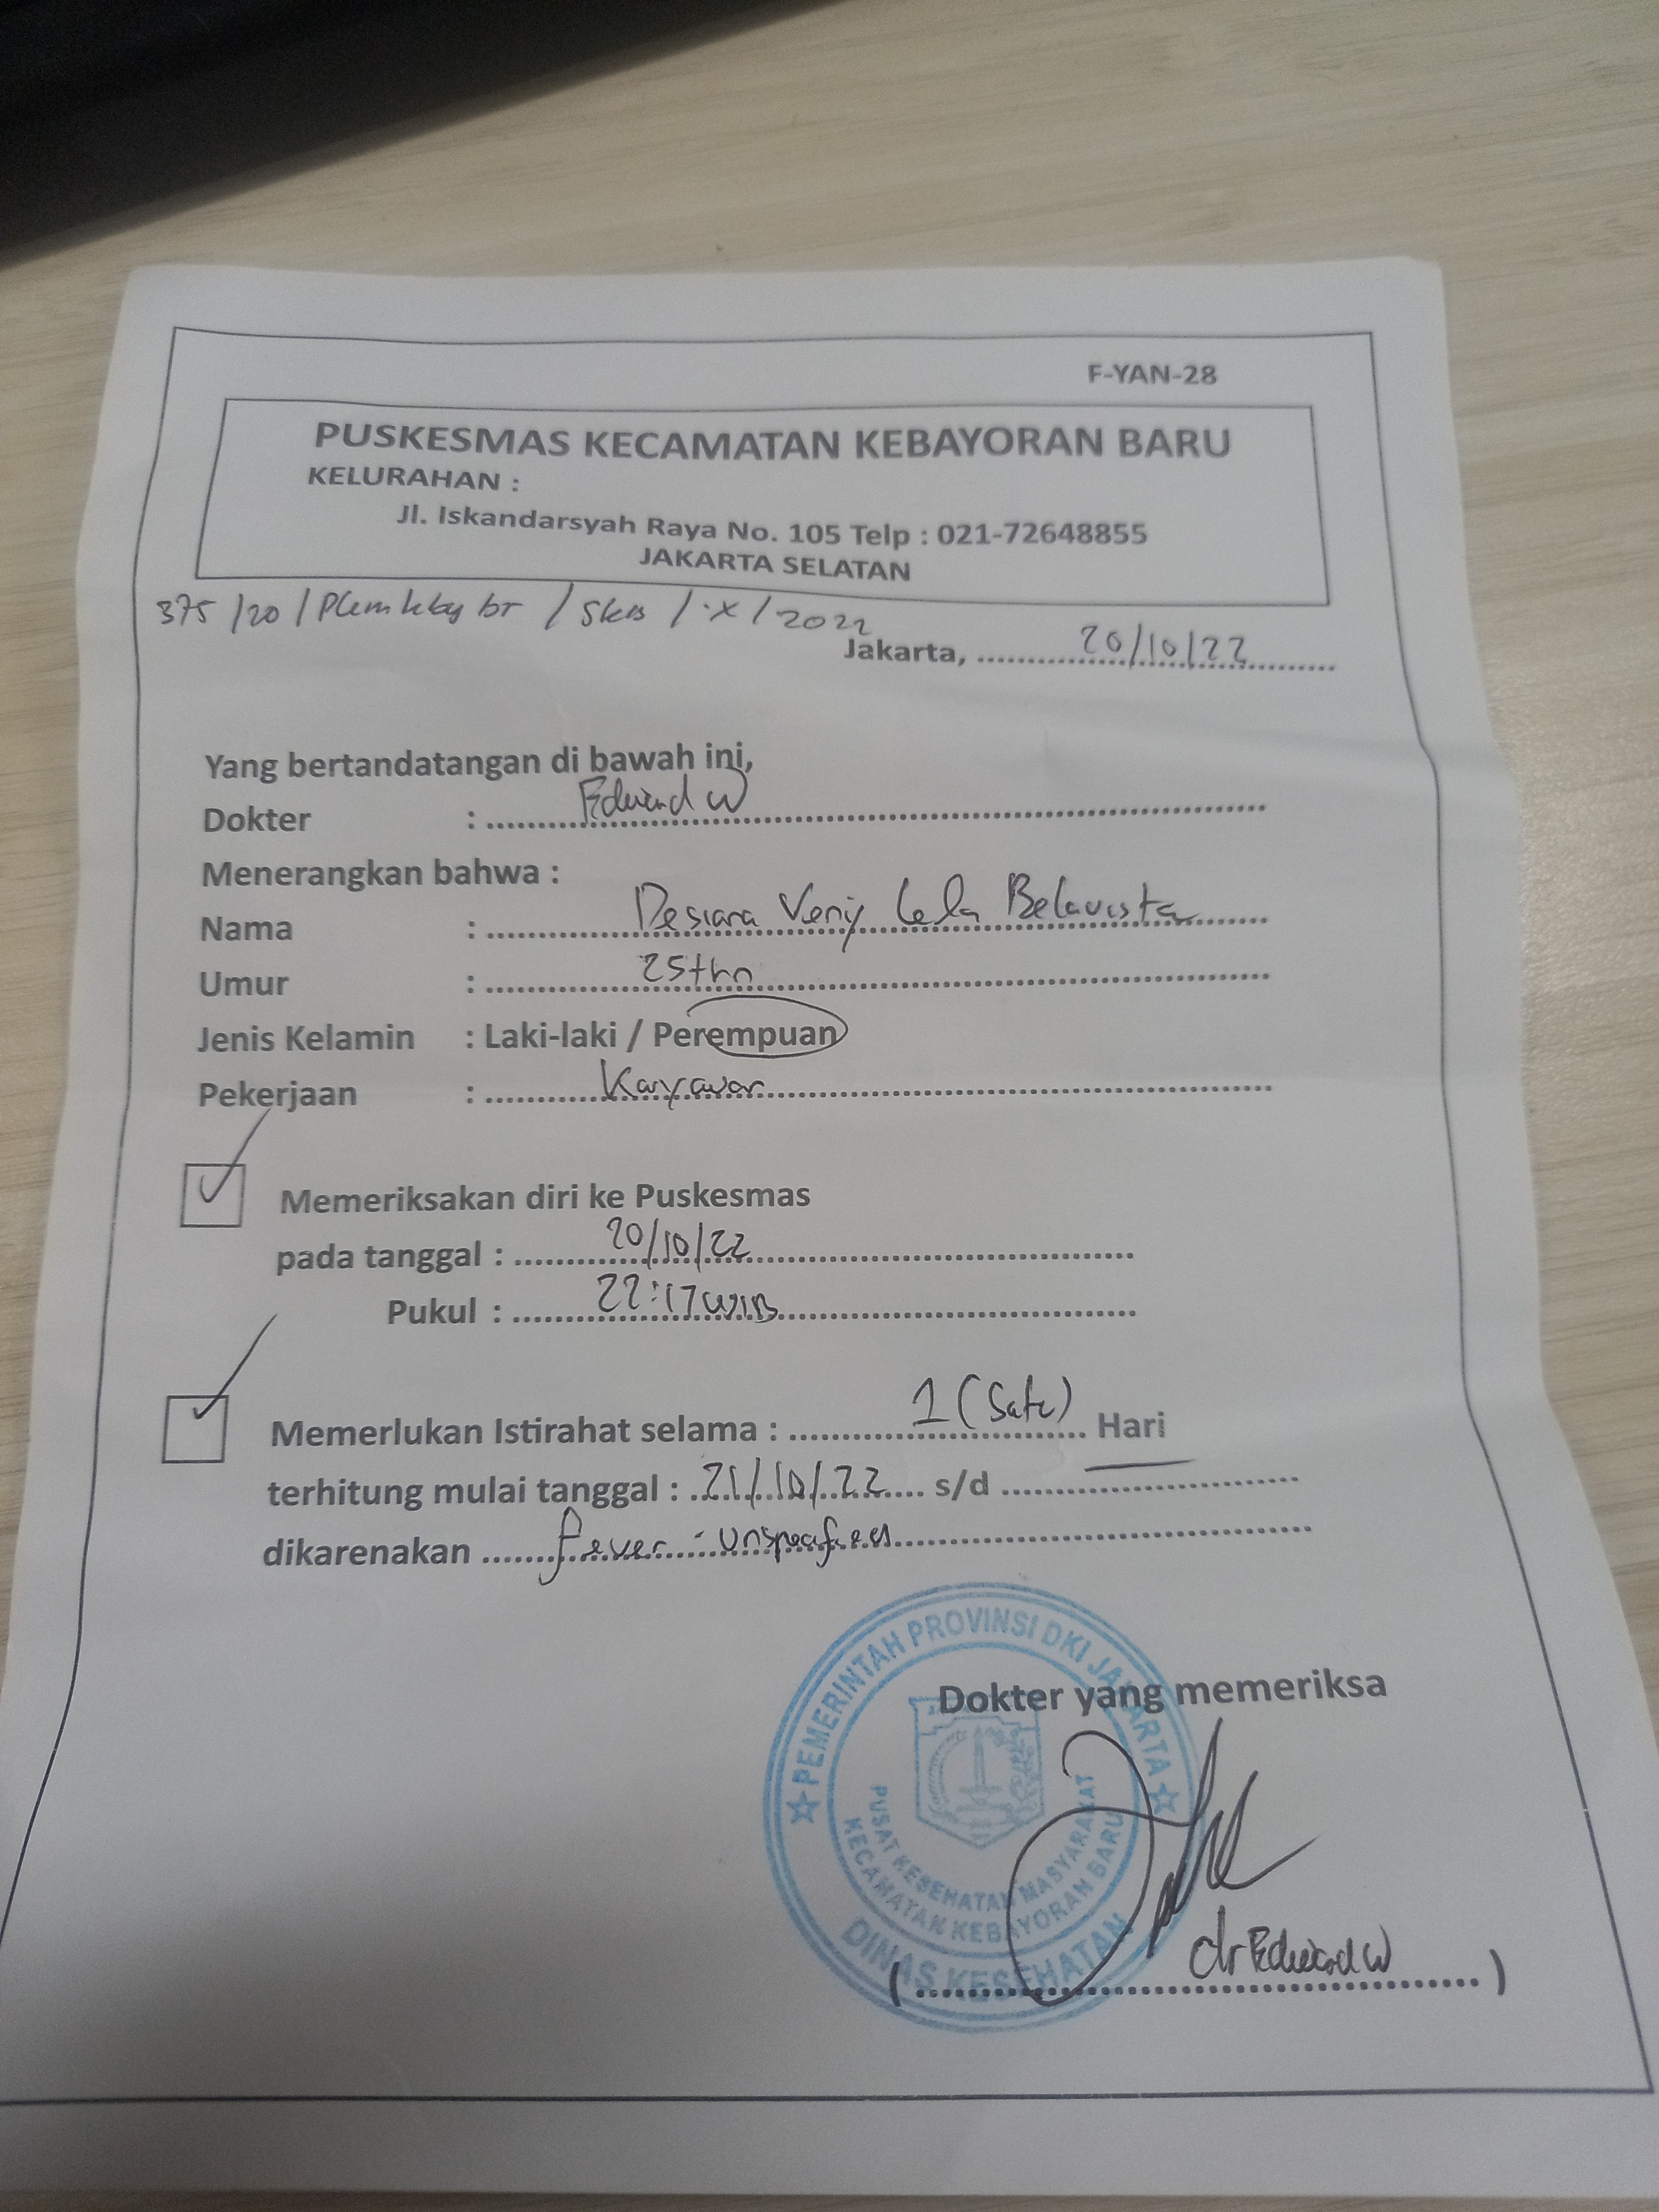 F-YAN-28
PUSKESMAS KECAMATAN KEBAYORAN BARU
KELURAHAN :
Jl. Iskandarsyah Raya No. 105 Telp : 021-72648855
JAKARTA SELATAN
375 /20 / / / X / 2022
Jakarta, 20/10/22
Yang bertandatangan di bawah ini,
Dokter : Edward W
Menerangkan bahwa :
Nama : Lela Belavista
Umur : 25thn
Jenis Kelamin : Laki-laki / Perempuan
Pekerjaan : Karyawan
Memeriksakan diri ke Puskesmas
pada tanggal : 20/10/22
Pukul : 22:17 WIB
Memerlukan Istirahat selama : 1 (Satu) Hari
terhitung mulai tanggal : 21/10/22 s/d
dikarenakan fever - unspecified
Dokter yang memeriksa
PEMERINTAH PROVINSI DKI JAKARTA
PUSAT KESEHATAN MASYARAKAT
KECAMATAN KEBAYORAN BARU
DINAS KESEHATAN
( dr Edward W )